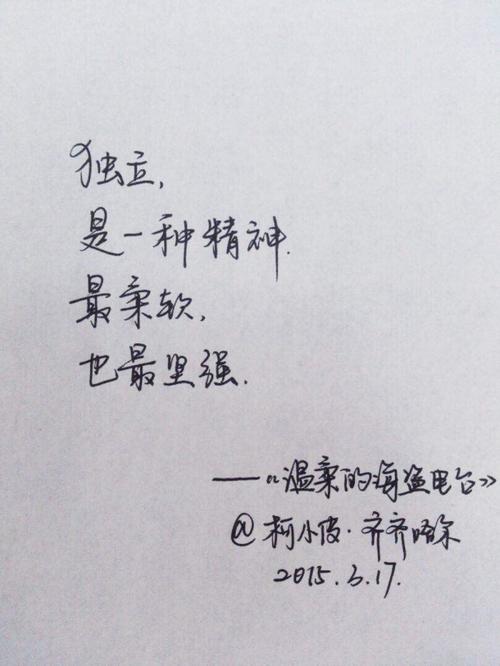 独立，
是一种精神.
最柔软，
也最坚强.
——《温柔的海盗电台》
@柯小皮·齐齐
2015.3.17.